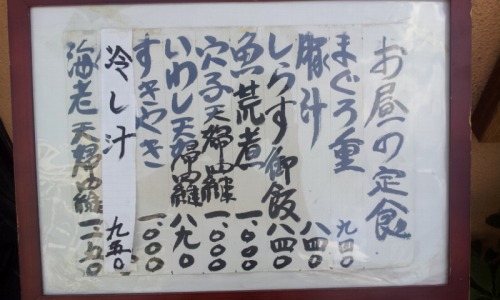 お昼の定食
まぐろ重 九四〇
豚汁 八四〇
しらす御飯 八四〇
魚荒煮 一、〇〇〇
穴子天婦羅 一、〇〇〇
いわし天婦羅 八九〇
すきやき 一、〇〇〇
冷し汁 九五〇
海老天婦羅 一、一五〇